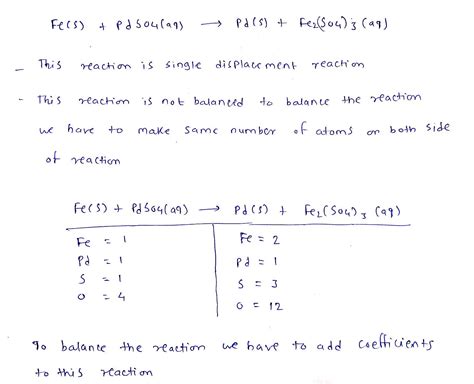 Fe(s) + PdSO4(aq) → Pd(s) + Fe2(SO4)3 (aq)
- This reaction is single displacement reaction
- This reaction is not balanced to balance the reaction
we have to make same number of atoms on both side
of reaction
Fe(s) + PdSO4(aq) → Pd(s) + Fe2(SO4)3 (aq)
Fe = 1 Fe = 2
Pd = 1 Pd = 1
S = 1 S = 3
O = 4 O = 12
To balance the reaction we have to add coefficients
to this reaction